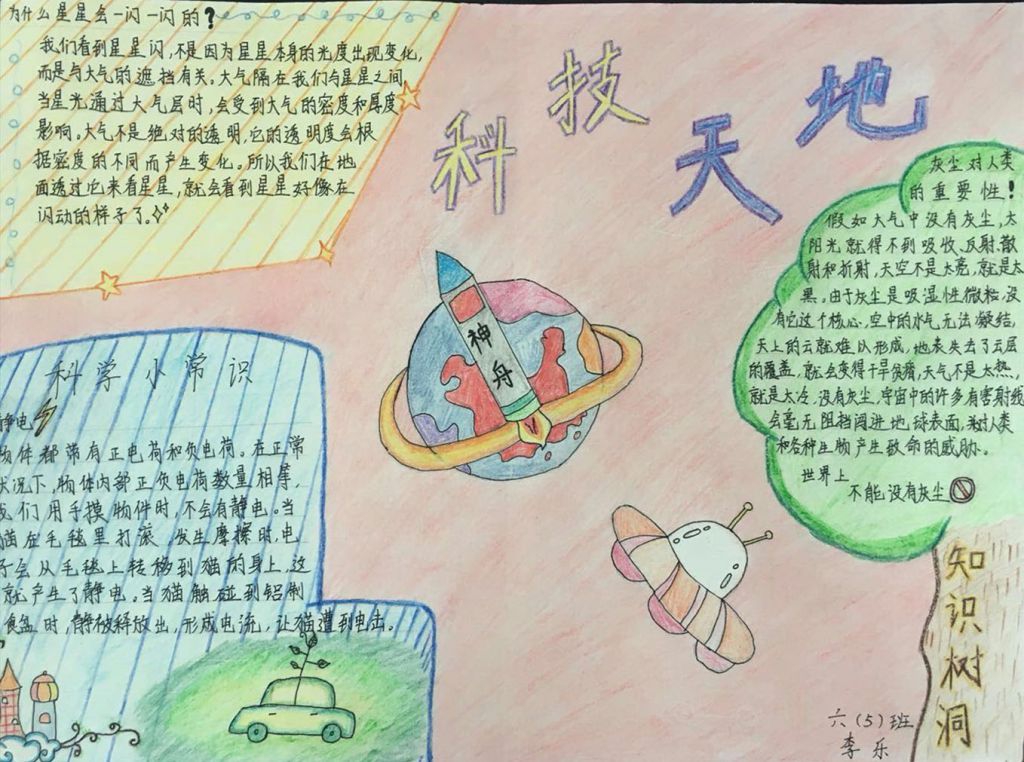 为什么星星会一闪一闪的?
我们看到星星闪,不是因为星星本身的光度出现变化,
而是与大气的遮挡有关。大气隔在我们与星星之间,
当星光通过大气层时,会受到大气的密度和厚度
影响。大气不是绝对的透明,它的透明度会根
据密度的不同而产生变化。所以我们在地
面透过它来看星星,就会看到星星好像在
闪动的样子了。
科技天地
神舟
灰尘对人类
的重要性!
假如大气中没有灰尘,太
阳光就得不到吸收、反射、散
射和折射,天空不是太亮,就是太
黑。由于灰尘是吸湿性微粒,没
有它这个核心,空中的水气无法凝结,
天上的云就难以形成,地表失去了云层
的覆盖,就会变得干旱贫瘠,天气不是太热,
就是太冷,没有灰尘,宇宙中的许多有害射线
会毫无阻挡闯进地球表面,对人类
和各种生物产生致命的威胁。
世界上
不能没有灰尘
知识树洞
科学小常识
静电
物体都带有正电荷和负电荷。在正常
状况下,物体内部正负电荷数量相等,
我们用手摸物件时,不会有静电。当
猫在毛毯里打滚 发生摩擦时,电
子会从毛毯上转移到猫的身上,这
就产生了静电。当猫触碰到铝制
食盆时,静被释放出,形成电流,让猫遭到电击。
六(5)班
李乐